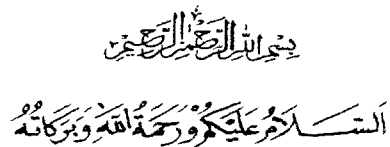 بِسْمِ اللهِ الرَّحْمٰنِ الرَّحِيْمِ
اَلسَّـــلَامُ عَلَيْكُمْ وَرَحْمَةُ اللهِ وَبَرَكَاتُهُ